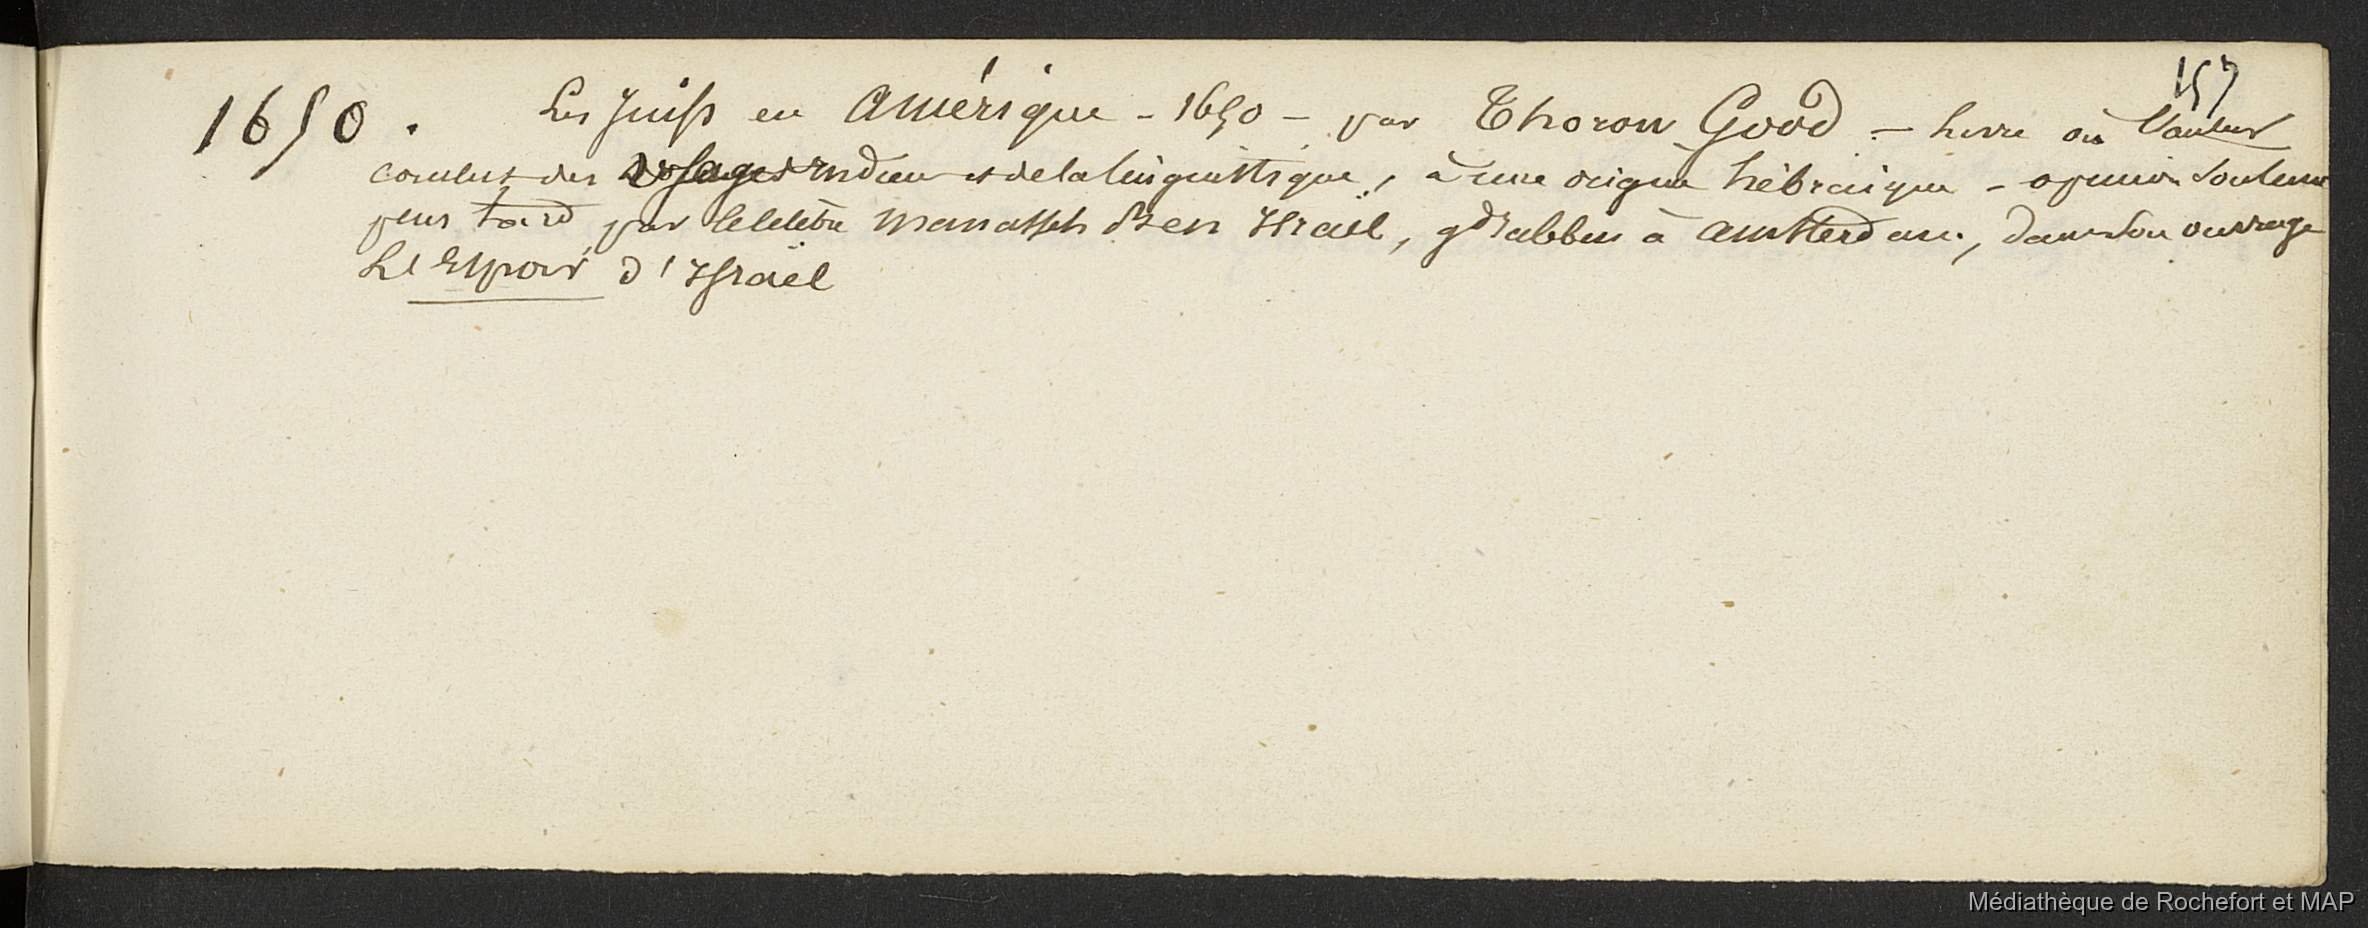 157
1650. Les Juifs en Amérique - 1650 - par Thorow Good - livre où l'auteur
conclut des usages indiens et de la linguistique, à une origine hébraique - opinion soutenue
plus tard par le célèbre Manasseh Ben Israël, gd Rabbin à Amsterdam, dans son ouvrage
L'Espoir d'Israël
Médiathèque de Rochefort et MAP